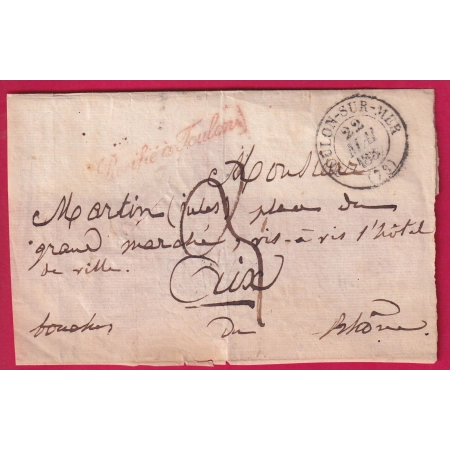 TOULON-SUR-MER
22
MAI
(78)
Purifié à Toulon
Monsieur
Martin (jules) place du
grand marché, vis-à vis l'hôtel
de ville.
Aix
bouches du Rhône.